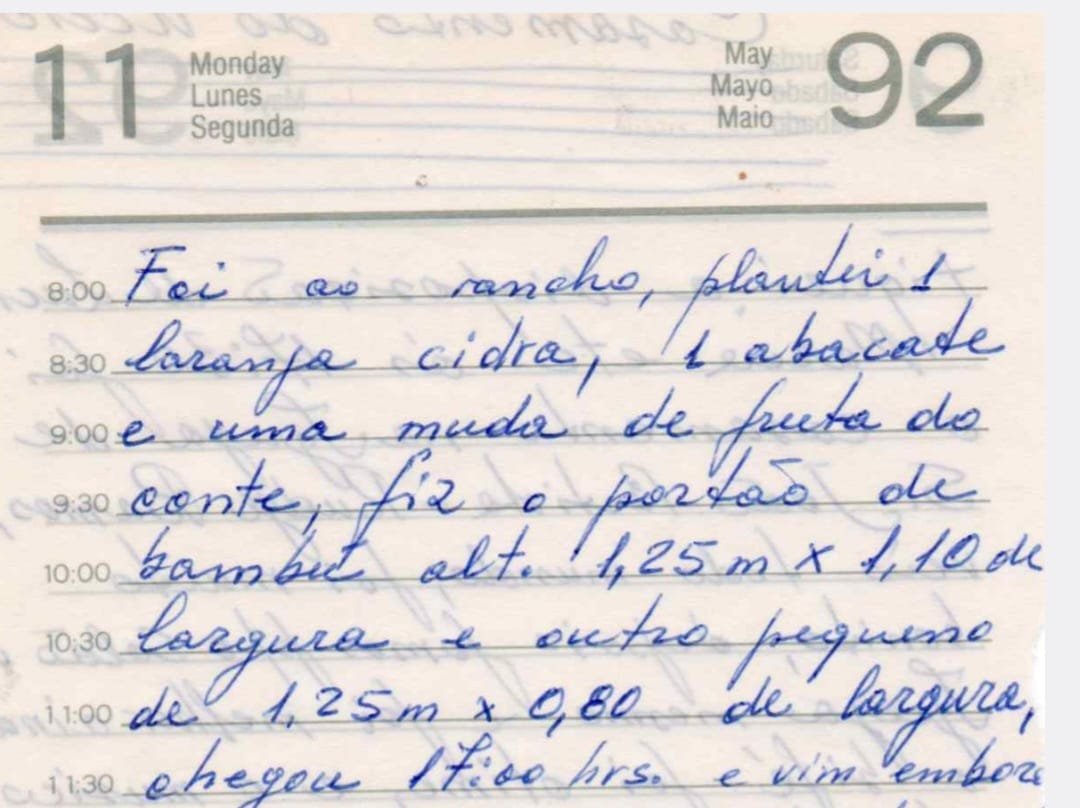 11 Monday May 92
Lunes Mayo
Segunda Maio
8:00 Foi ao rancho, plantei 1
8:30 laranja cidra, 1 abacate
9:00 e uma muda de fruta do
9:30 conte, fiz o portão de
10:00 bambú alt. 1,25m x 1,10 de
10:30 largura e outro pequeno
11:00 de 1,25m x 0,80 de largura,
11:30 chegou 17:00 hrs. e vim embora